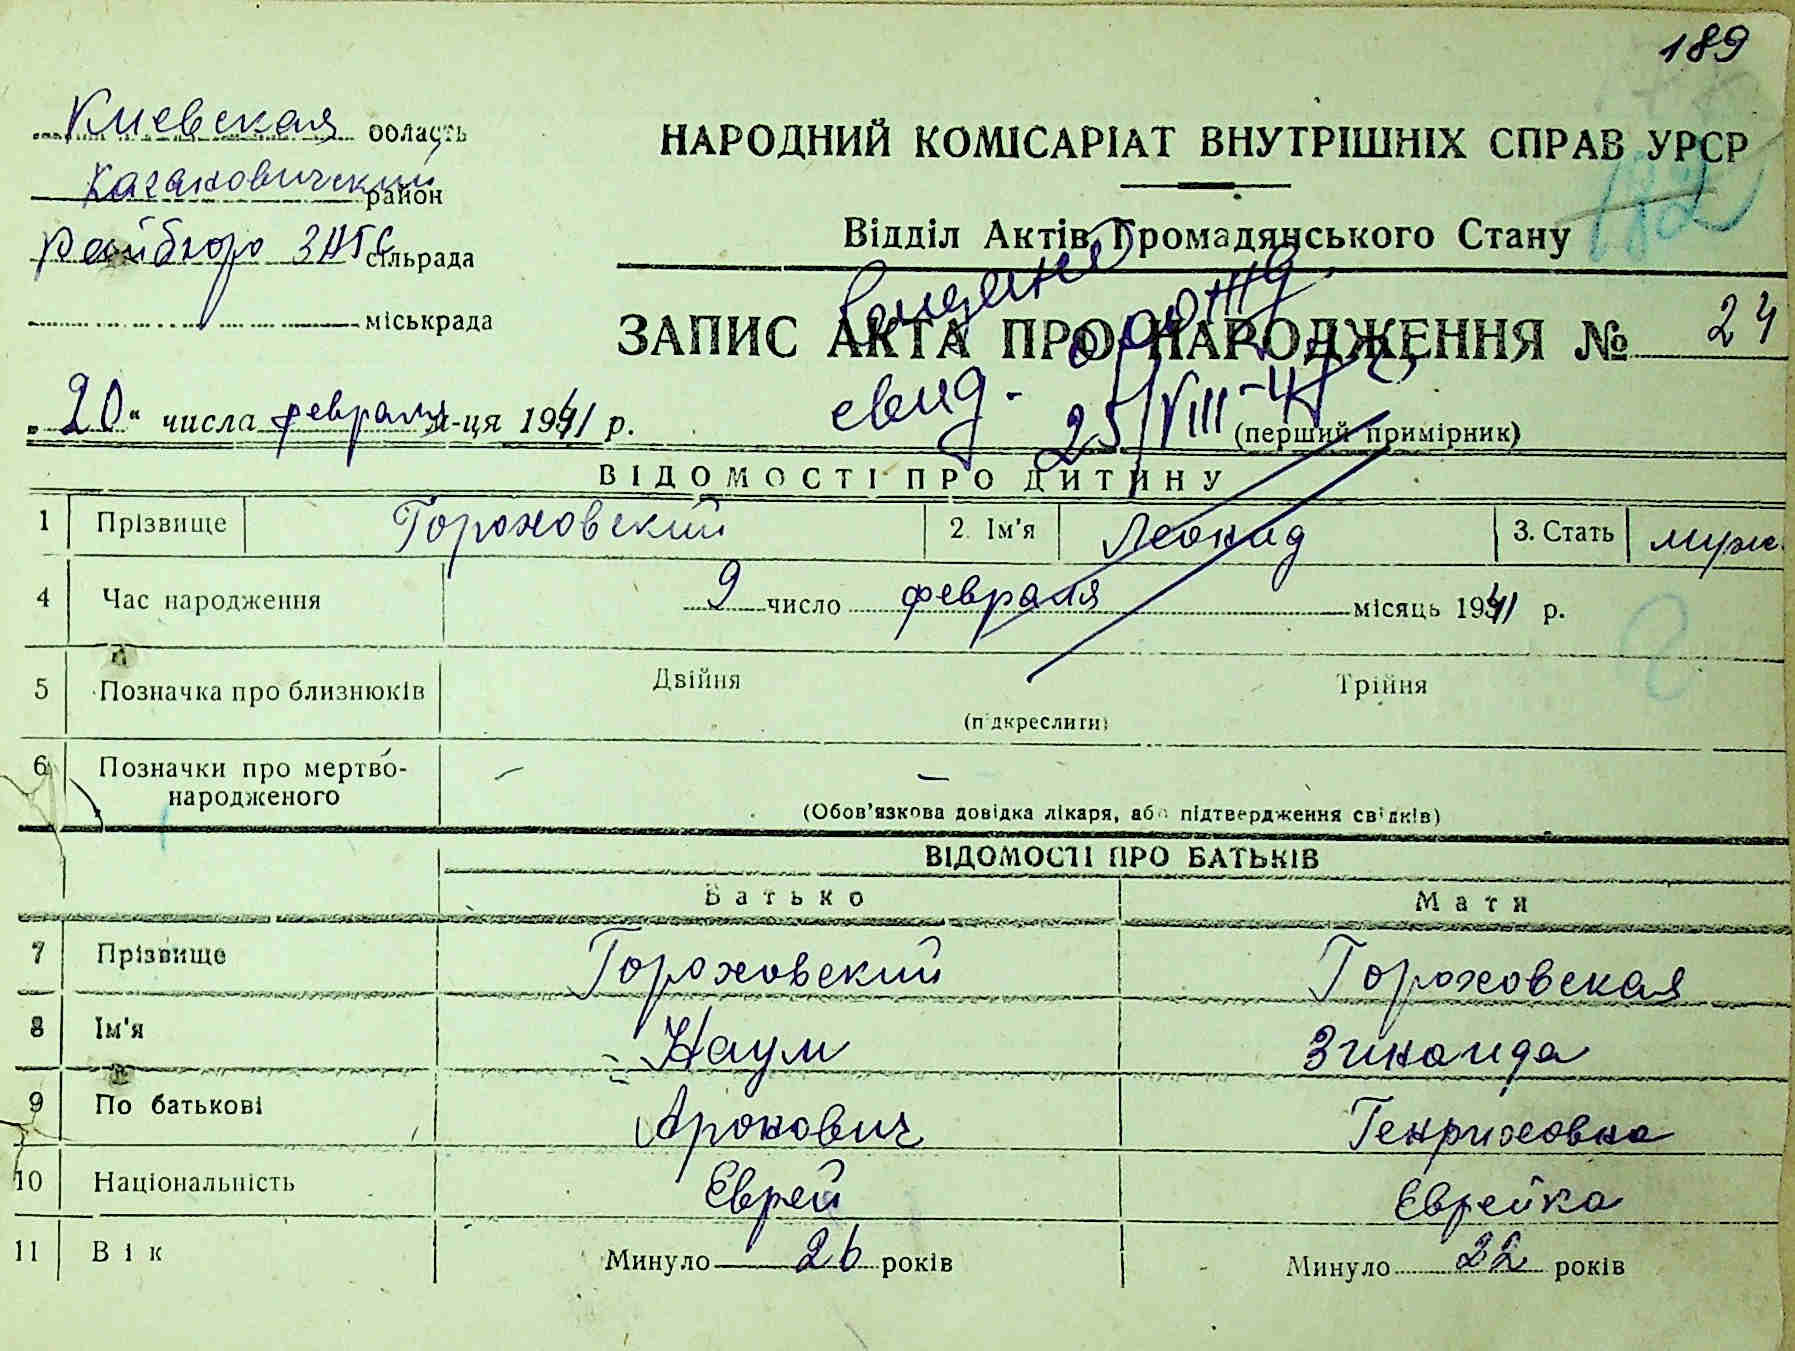 189
Киевская область
НАРОДНИЙ КОМІСАРІАТ ВНУТРІШНІХ СПРАВ УРСР
Кагановичский район
182
Райбюро ЗАГС сільрада
Відділ Актів Громадянського Стану
міськрада
ЗАПИС АКТА ПРО НАРОДЖЕННЯ № 24
„20“ числа февраля м-ця 1941 р.
свид. 25/VIII-41
(перший примірник)
ВІДОМОСТІ ПРО ДИТИНУ
1 Прізвище Гороховский 2. Ім'я Леонид 3. Стать муж.
4 Час народження 9 число февраля місяць 1941 р.
5 Позначка про близнюків Двійня Трійня
(підкреслити)
6 Позначки про мертво-
народженого — —
(Обов'язкова довідка лікаря, або підтвердження свідків)
ВІДОМОСТІ ПРО БАТЬКІВ
Батько Мати
7 Прізвище Гороховский Гороховская
8 Ім'я Наум Зинаида
9 По батькові Аронович Генриховна
10 Національність Еврей Еврейка
11 Вік Минуло 26 років Минуло 22 років